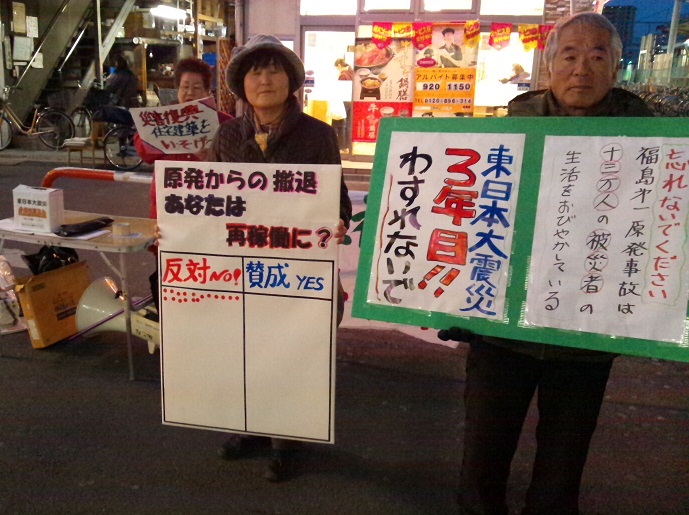 災害復興
住宅建築を
いそげ
東日本大震災
原発からの 撤退
あなたは
再稼働に?
反対NO! 賛成 YES
東日本大震災
3年目!!
わすれないで
忘れないでください
福島第一原発事故は
十三万人の被災者の
生活をおびやかしている
アルバイト募集中
920 1150
0120-856-314